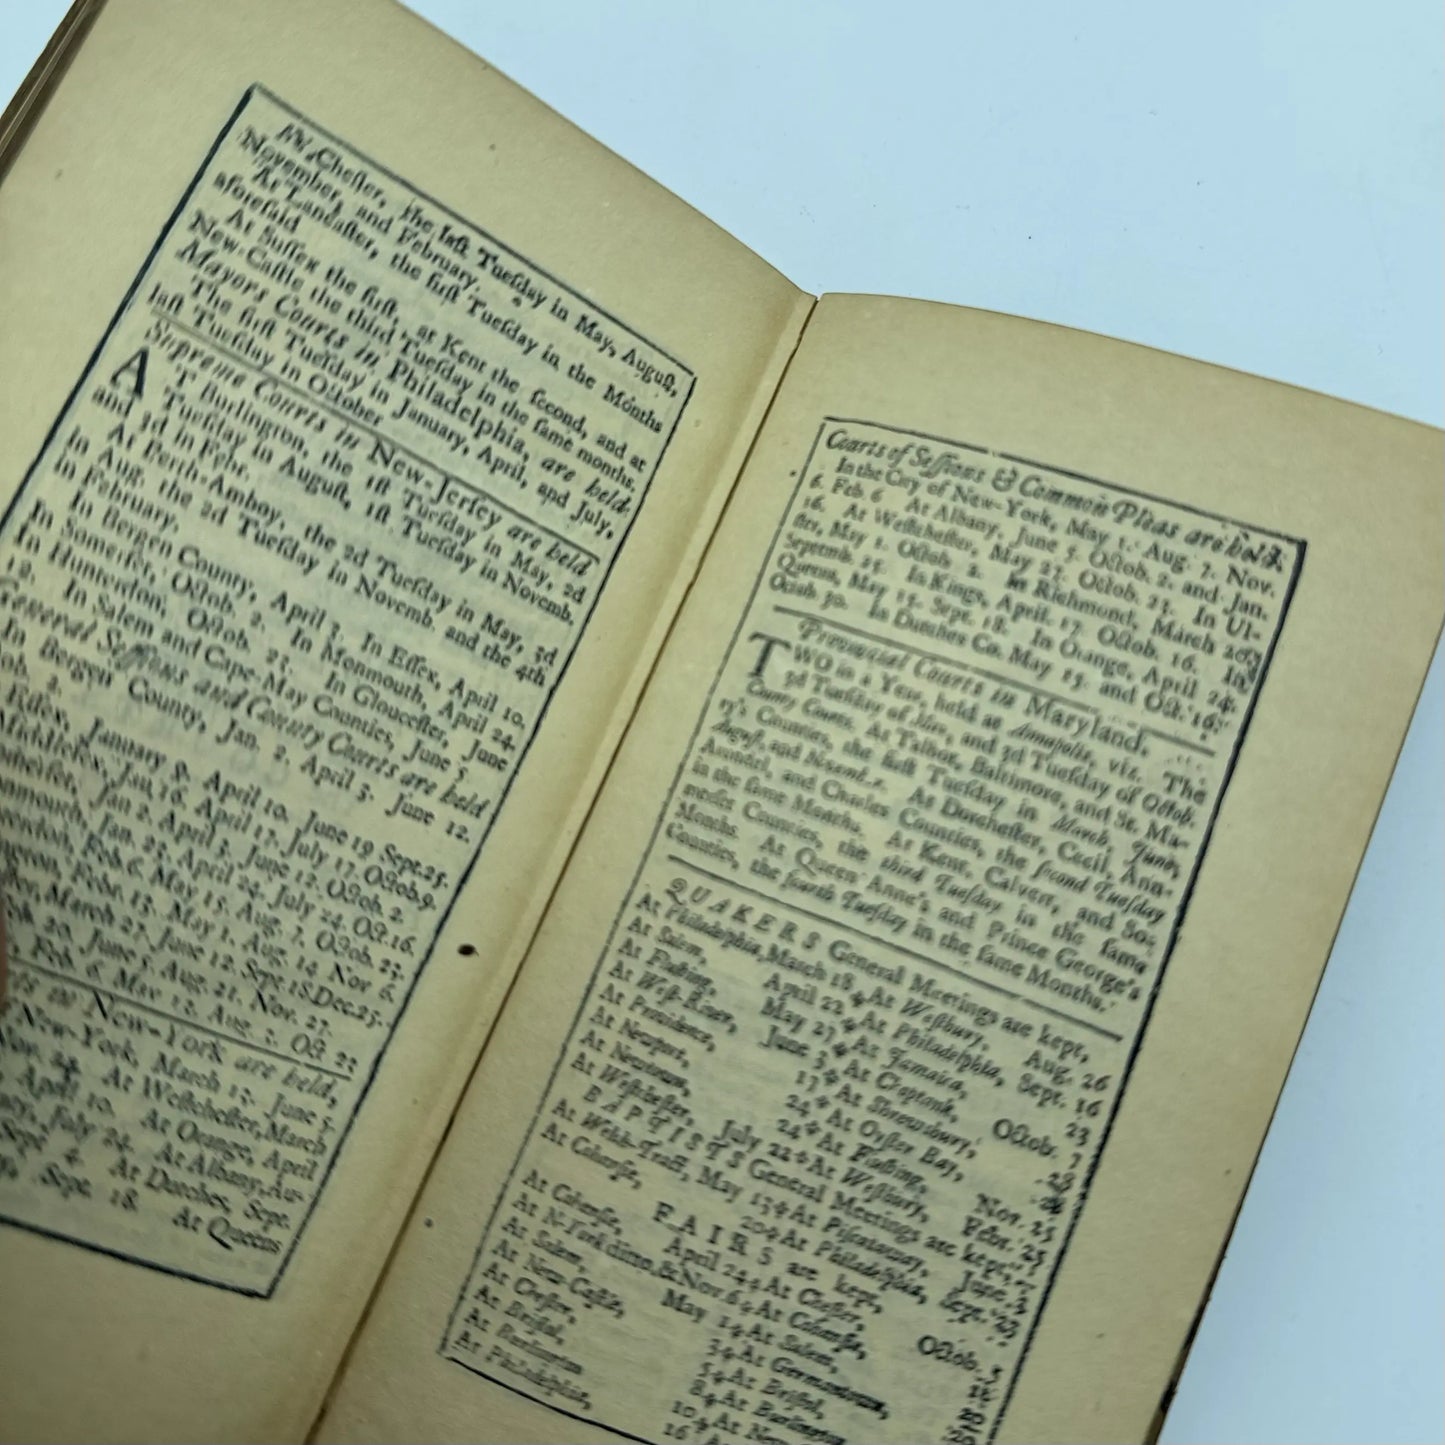 At Chester, the last Tuesday in May, August,
November, and February.
At Lancaster, the first Tuesday in the Months
aforesaid
At Sussex the first, at Kent the second, and at
New-Castle the third Tuesday in the same months.
Mayors Courts in Philadelphia, are held.
The first Tuesday in January, April, and July,
last Tuesday in October
Supreme Courts in New-Jersey are held
AT Burlington, the 1st Tuesday in May, 2d
Tuesday in August, 1st Tuesday in Novemb.
and 3d in Febr.
At Perth-Amboy, the 2d Tuesday in May, 3d
in Aug. the 2d Tuesday in Novemb. and the 4th
in February,
In Bergen County, April 3. In Essex, April 10.
In Somerset, Octob. 2. In Monmouth, April 24.
In Hunterdon, Octob. 23. In Gloucester, June
12. In Salem and Cape-May Counties, June 5.
General Sessions and County Courts are held
In Bergen County, Jan. 2. April 3. June 12.
2.
Essex, January 9. April 10. June 19 Sept. 25.
Middlesex, Jan 16. April 17. July 17. Octob. 9.
Jan 2. April 3. June 12. Octob. 2.
Jan. 23. April 24. July 24. Oct. 16.
Feb. 6. May 15. Aug. 7. Octob. 23.
Febr. 13. May 1. Aug. 14. Nov 6.
March 27. June 12. Sept. 18. Dec. 25.
20. June 5. Aug. 21. Nov. 27.
Feb 6. May Aug. Oct 23
in New-York are held,
New-York, March 13. June 5.
At Westchester, March
April 10. At Orange, April
July 24. At Albany, Au-
Sept 4. At Dorches, Sept.
Sept. 18. At Queens
Courts of Sessions & Common Pleas are held.
In the City of New-York, May 1. Aug. 7. Nov.
6. Feb. 6 At Albany, June 5. Octob. 2. and Jan.
16. At Westchester, May 27. Octob. 23. In Ul-
ster, May 1. Octob 2. In Richmond, March 20.
Septemb. 25. In Kings, April. 17. Octob. 16. In
Queens, May 15. Sept. 18. In Orange, April 24.
Octob 30. In Dutches Co. May 15. and Oct. 16.
Provincial Courts in Maryland.
TWO in a Year, held at Annapolis, viz. The
3d Tuesday of and 3d Tuesday of Octob.
County Courts. At Talbot, Baltimore, and St. Ma-
ry's Counties, the first Tuesday in March, June,
August, and At Dorchester, Cecil, Ann-
Arundel, and Charles Counties, the second Tuesday
in the same Months. At Kent, Calvert, and So-
merset Counties, the third Tuesday in the same
Months. At Queen Anne's and Prince George's
Counties, the fourth Tuesday in the same Months.
QUAKERS General Meetings are kept,
At Philadelphia, March 18 At Westbury, Aug. 26
At Salem, April 22 At Philadelphia, Sept. 16
At Flushing, May 27 At Jamaica, 23
At West-River, June 3 At Choptank, Octob. 7
At Providence, 17 At Shrewsbury, 28
At Newport, 24 At Oyster Bay,
At Newtown, 24 At Flushing, Nov. 25
At Westchester, July 22 At Westbury, Febr. 25
BAPTISTS General Meetings are kept,
At Welsh-Tract, May 13 At Piscataway, June 3
At Cohansie, 20 At Philadelphia, Sept. 23
FAIRS are kept,
At Cohansie, April 24 At Chester, Octob. 5
At N-York ditto, & Nov. 6 At Cohansie,
At Salem, May 1 At Salem, 20
At New-Castle, 3 At Germantown, 20
At Chester, 5 At Bristol,
At Bristol, 8 At Burlington
At Burlington 10
At Philadelphia, 16